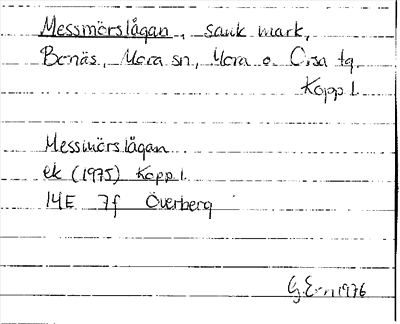 Messmörslågan, sank mark,
Bonäs, Mora sn, Mora o. Orsa tg,
Kopp l.
Messmörslågan
ek (1975) Kopp l.
14E 7f Överberg
G.E-n 1976